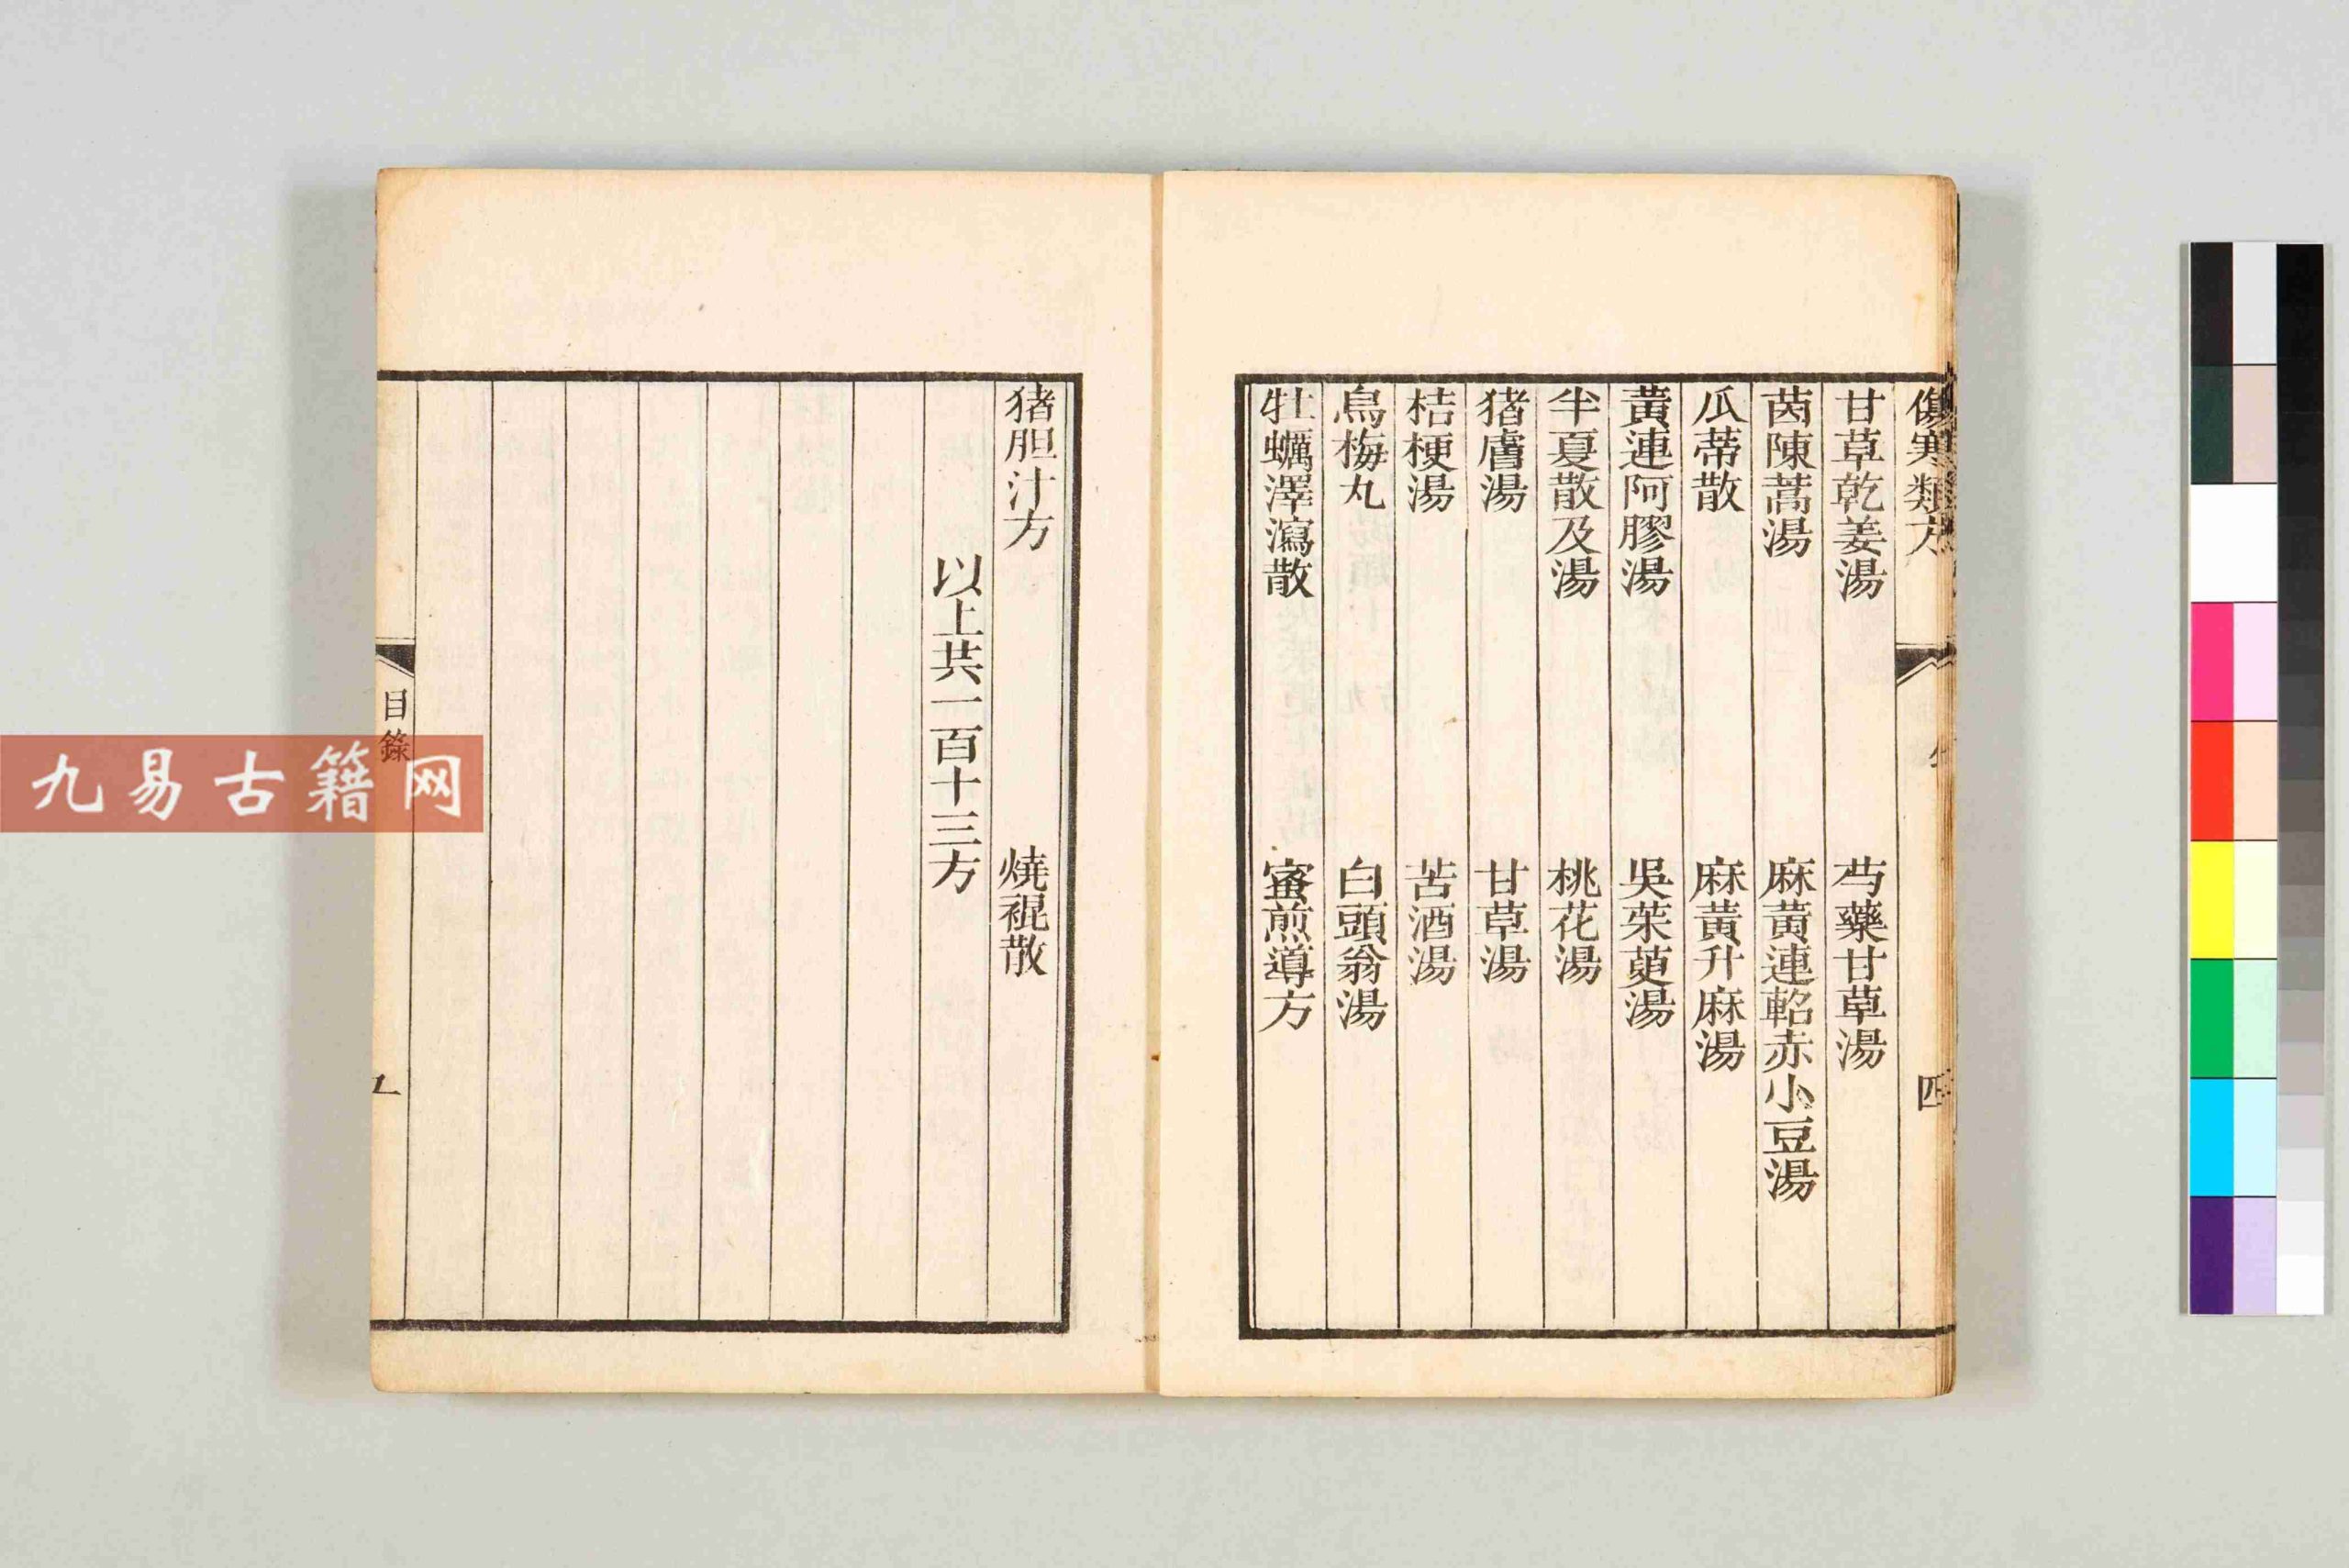 傷寒類方
四
甘草乾姜湯　芍藥甘草湯
茵陳蒿湯　麻黃連軺赤小豆湯
瓜蒂散　麻黃升麻湯
黃連阿膠湯　吳茱萸湯
半夏散及湯　桃花湯
猪膚湯　甘草湯
桔梗湯　苦酒湯
烏梅丸　白頭翁湯
牡蠣澤瀉散　蜜煎導方
猪胆汁方　燒裩散
以上共一百十三方
目錄
九易古籍网